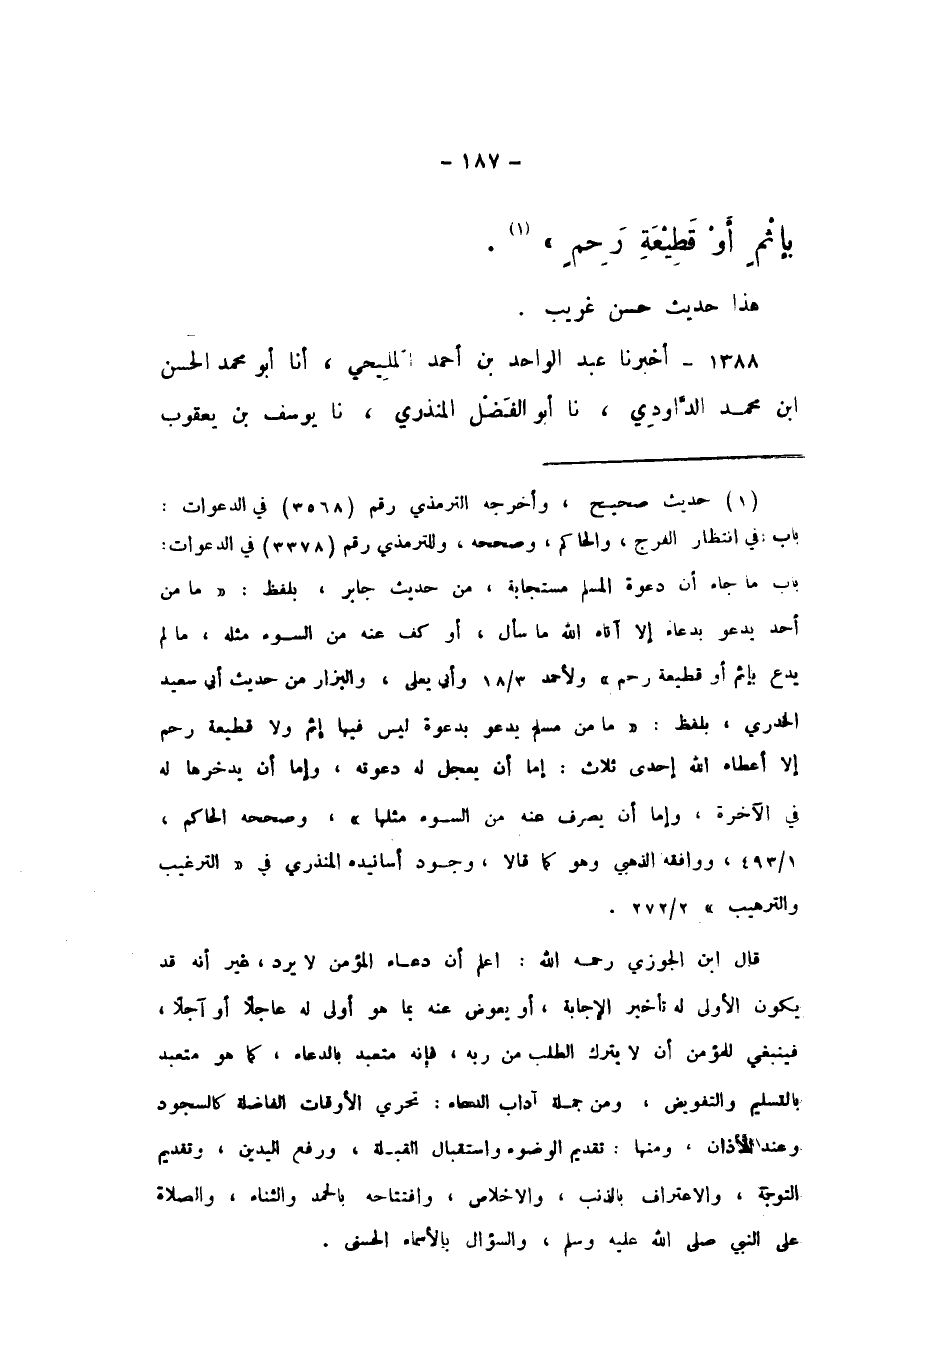 - ١٨٧ -
بِإِثْمٍ أَوْ قَطِيْعَةِ رَحِمٍ » (١) .
هذا حديث حسن غريب .
١٣٨٨ - أخبرنا عبد الواحد بن أحمد المليحي ، أنا أبو محمد الحسن
ابن محمد الدَّاودي ، نا أبو الفَضْل المنذري ، نا يوسف بن يعقوب
(١) حديث صحيح ، وأخرجه الترمذي رقم (٣٥٦٨) في الدعوات :
باب : في انتظار الفرج ، والحاكم ، وصححه ، وللترمذي رقم (٣٣٧٨) في الدعوات :
باب ما جاء أن دعوة المسلم مستجابة ، من حديث جابر ، بلفظ : « ما من
أحد يدعو بدعاء إلا آتاه الله ما سأل ، أو كف عنه من السوء مثله ، ما لم
يدع بإثم أو قطيعة رحم » ولأحمد ١٨/٣ وأبي يعلى ، والبزار من حديث أبي سعيد
الخدري ، بلفظ : « ما من مسلم يدعو بدعوة ليس فيها إثم ولا قطيعة رحم
إلا أعطاه الله إحدى ثلاث : إما أن يعجل له دعوته ، وإما أن يدخرها له
في الآخرة ، وإما أن يصرف عنه من السوء مثلها » ، وصححه الحاكم ،
٤٩٣/١ ، ووافقه الذهبي وهو كما قالا ، وجود أسانيده المنذري في « الترغيب
والترهيب » ٢٧٢/٢ .
قال ابن الجوزي رحمه الله : اعلم أن دعاء المؤمن لا يرد ، غير أنه قد
يكون الأولى له تأخير الإجابة ، أو يعوض عنه بما هو أولى له عاجلًا أو آجلًا ،
فينبغي للمؤمن أن لا يترك الطلب من ربه ، فإنه متعبد بالدعاء ، كما هو متعبد
بالتسليم والتفويض ، ومن جملة آداب الدعاء : تحري الأوقات الفاضلة كالسجود
وعند الأذان ، ومنها : تقديم الوضوء واستقبال القبلة ، ورفع اليدين ، وتقديم
التوبة ، والاعتراف بالذنب ، والاخلاص ، وافتتاحه بالحمد والثناء ، والصلاة
على النبي صلى الله عليه وسلم ، والسؤال بالأسماء الحسنى .